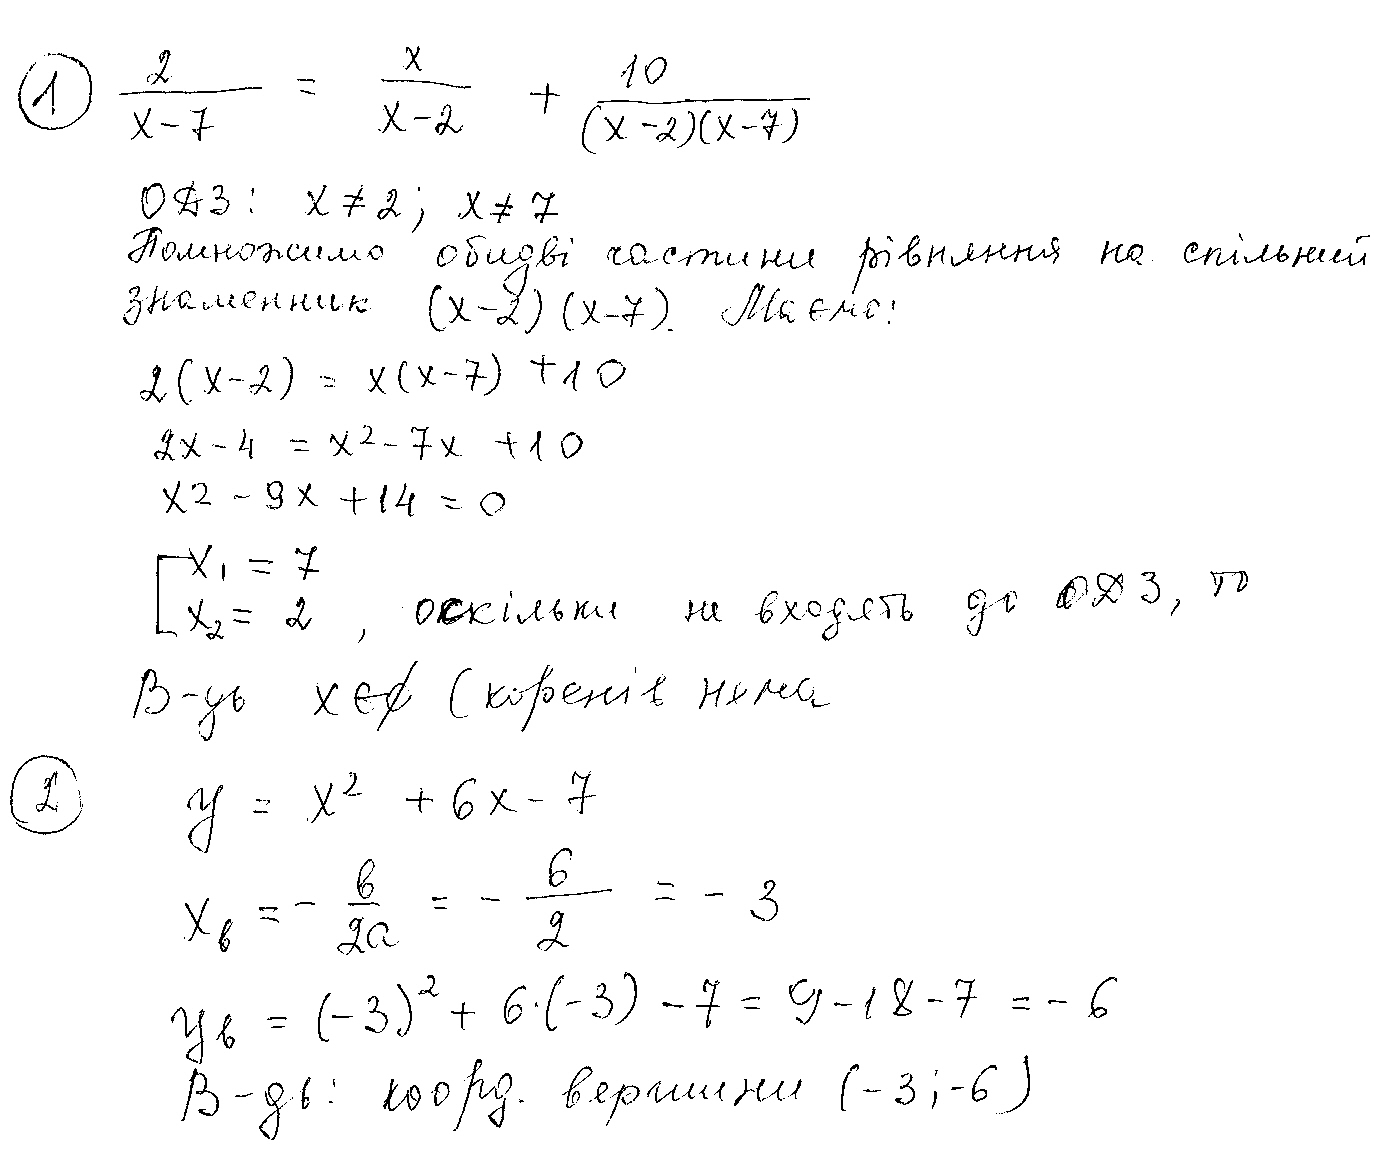 1 2/(x-7) = x/(x-2) + 10/((x-2)(x-7))
ОДЗ: x≠2; x≠7
Помножимо обидві частини рівняння на спільний
знаменник (x-2)(x-7). Маємо:
2(x-2) = x(x-7) +10
2x-4 = x²-7x +10
x2 - 9x +14 = 0
[x₁ = 7
x₂ = 2 , оскільки не входять до ОДЗ, то
В-дь x∈∅ (коренів нема
2 y = x² +6x-7
xв = - в/2a = - 6/2 = - 3
yв = (-3)² + 6·(-3) -7 = 9-18-7 = - 6
В-дь: коорд. вершини (-3;-6)